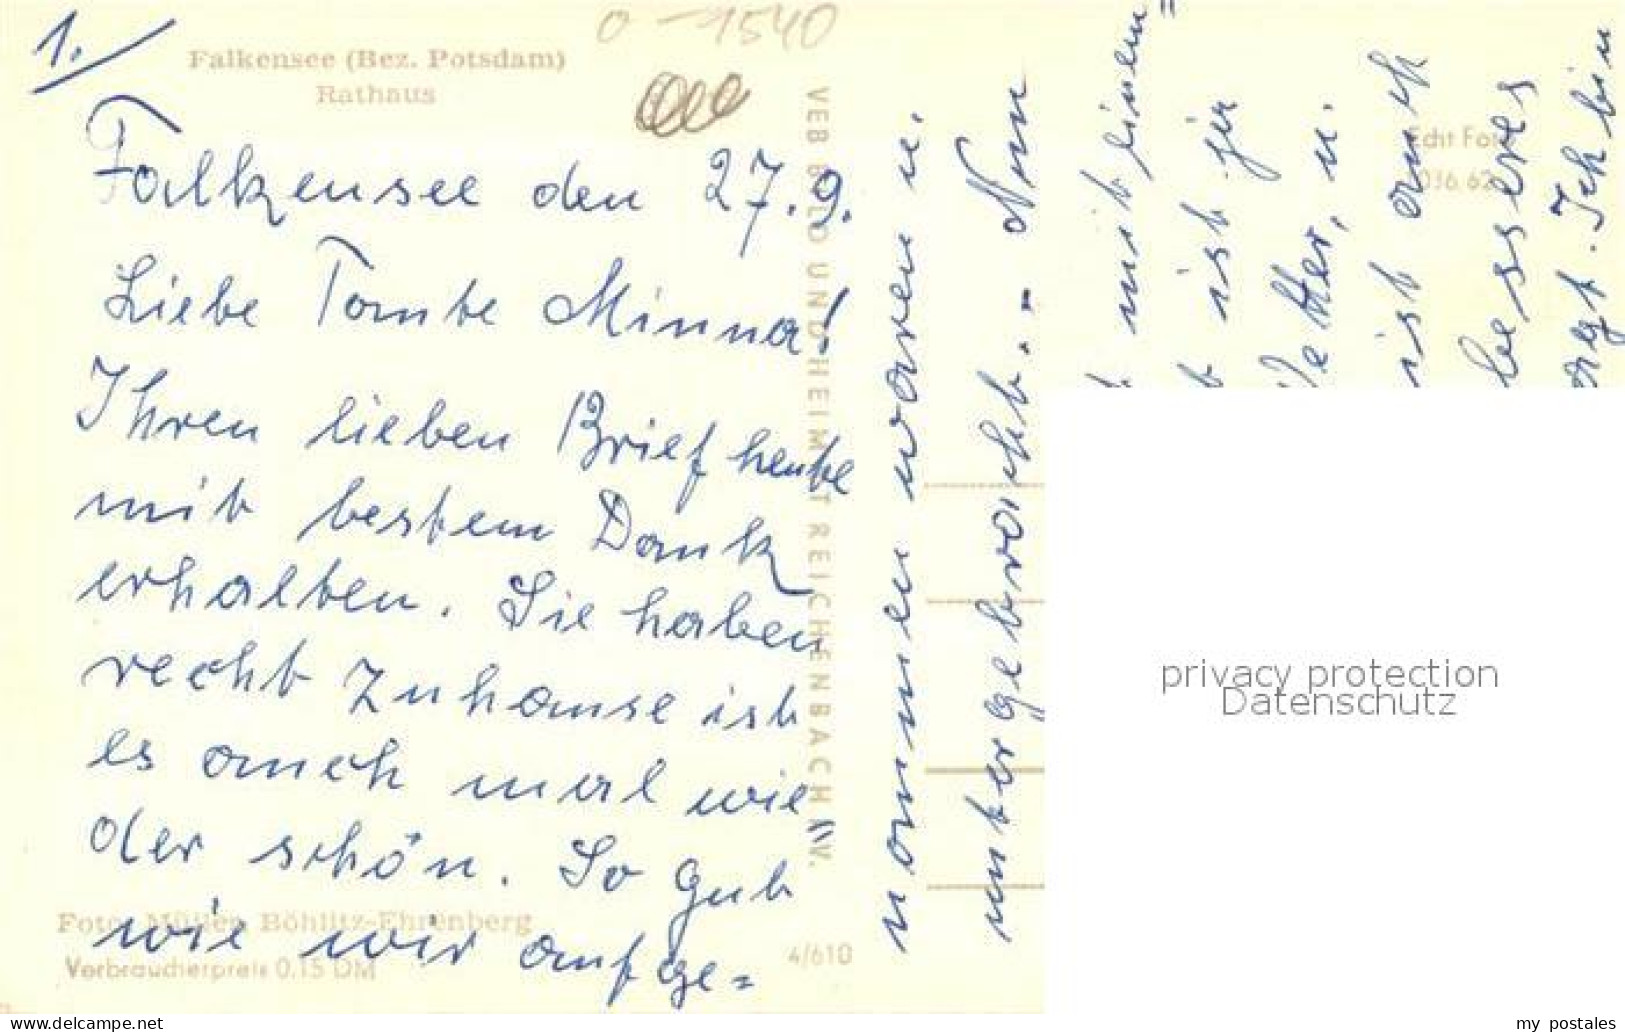 o-1540
1.
Falkensee (Bez. Potsdam)
Rathaus
Falkensee den 27.9.
Liebe Tante Minna!
Ihren lieben Brief heute
mit bestem Dank
erhalten. Sie haben
recht Zuhause ist
es auch mal wie
der schön. So gut
wie wir aufge=
Foto: Müller, Böhlitz-Ehrenberg
Verbraucherpreis 0.15 DM
4/610
VEB BILD UND HEIMAT REICHENBACH V.
nommen waren u.
untergebracht. - Nun
mit einem=
ist ja
Wetter, u.
ist auch
besseres
Ich bin
Echt Foto
privacy protection
Datenschutz
www.delcampe.net
my_postales